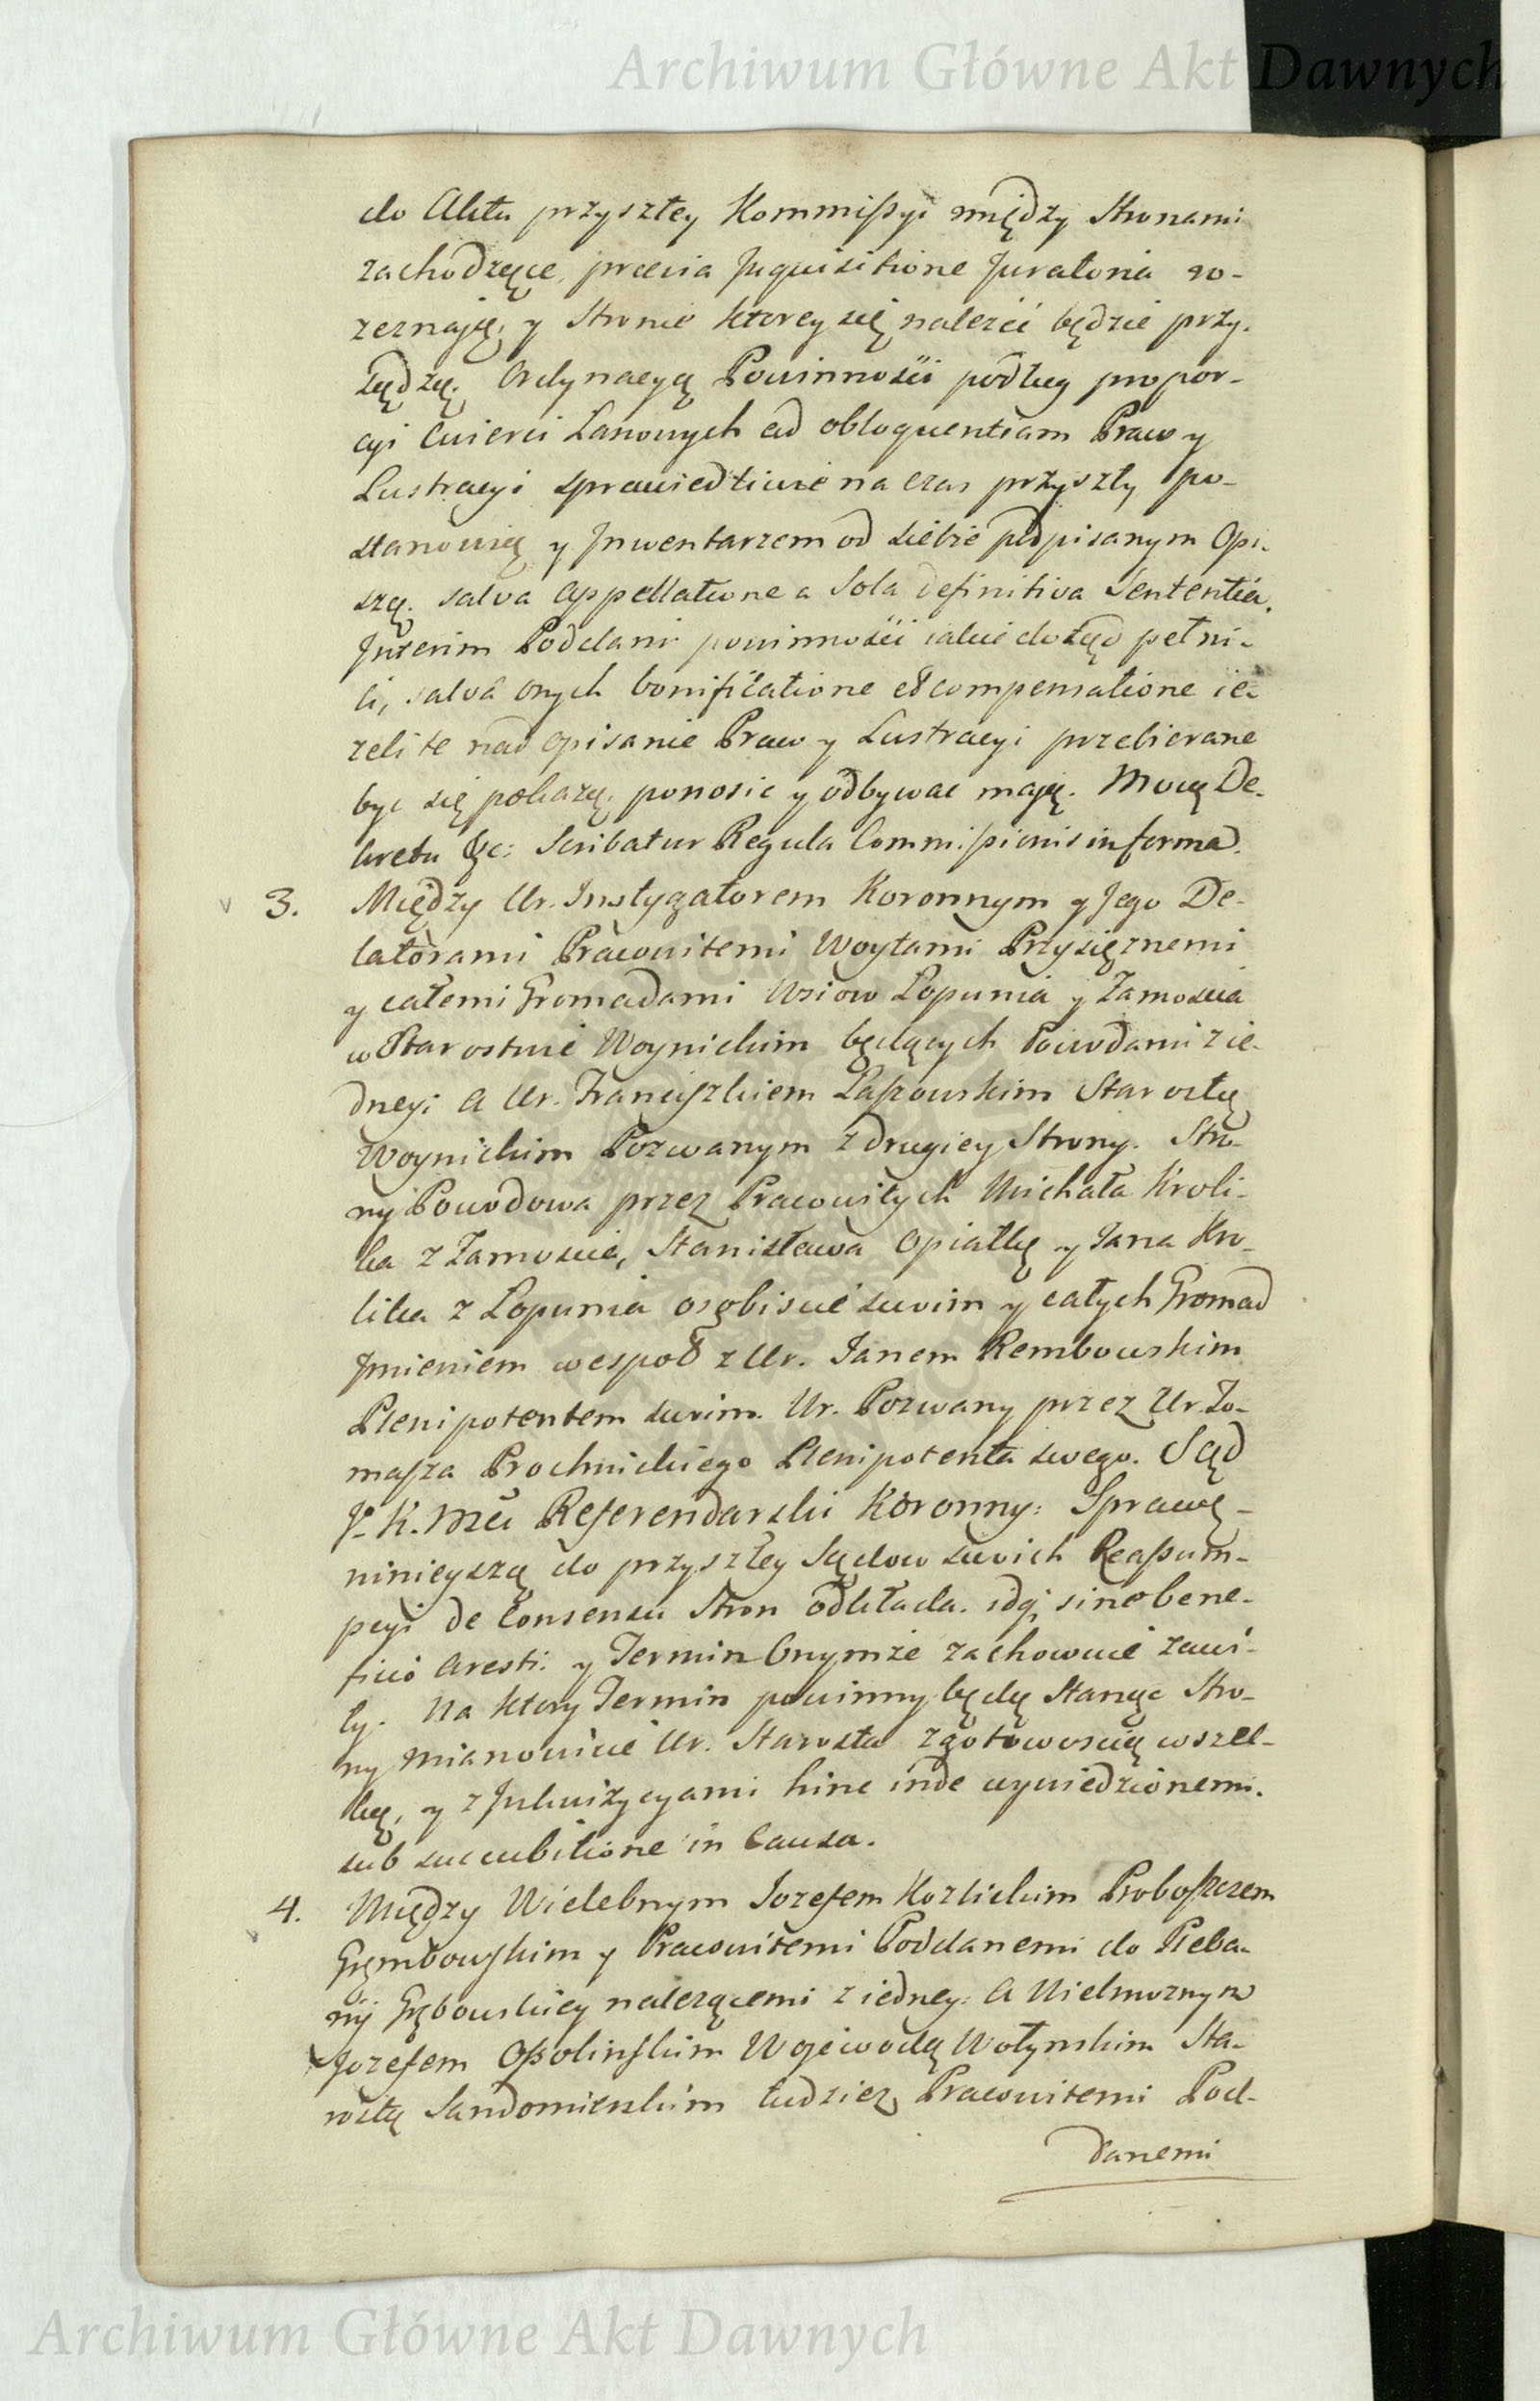 Archiwum Główne Akt Dawnych
do Aktu przyszłey Kommissyi między Stronami
zachodzące, praevia Jnquisitione Juratoria ro-
zeznaią, y Stronie ktorey się należeć będzie przy-
sądzą, Ordynacyą Powinności podług propor-
cyi Cwierci Łanowych ad obloquentiam Praw y
Lustracyi sprawiedliwie na czas przyszły po-
stanowią y Jnwentarzem od siebie podpisanym Opi-
szą. salva Appellatione a Sola definitiva Sententia.
Jnterim Poddani powinności iakie dotąd pełni-
li, salva onych bonificatione et compensatione ie-
żeli te nad opisanie Praw y Lustracyi przebierane
być się pokażą, ponosic y odbywac maią. Mocą De-
kretu &c: Scribatur Regula Commissionis in forma.
3. Między Ur. Jnstygatorem Koronnym y Jego De-
latorami Pracowitemi Woytami Przysięznemi
y całemi Gromadami Wsiow Łopunia y Zamoscia
w Starostwie Woynickim będących Powodami z ie-
dney: A Ur. Franciszkiem Łaszowskim Starostą
Woynickim Pozwanym z drugiey Strony. Stro-
ny Powodowa przez Pracowitych Michała Kroli-
ka z Zamoscia, Stanisława Opiatkę y Jana Kro-
lika z Łopunia osobiscie swoim y całych Gromad
Jmieniem wespoł z Ur. Janem Rembowskim
Plenipotentem swoim. Ur. Pozwany przez Ur. To-
masza Prochnickiego Plenipotenta swego. Sąd
Jo. K. Mci Referendarski Koronny: Sprawę
ninieyszą do przyszłey Sądow swoich Reassum-
pcyi de Consensu Stron odkłada. idq; sine bene-
ficio Aresti. y Termin Onymże zachowuie zawi-
ty. Na ktory Termin powinny będą Stanąc Stro-
ny mianowicie Ur. Starosta z gotowoscią wszel-
ką, y z Jnkwizycyami hinc inde wywiedzionemi.
sub succubitione in Causa.
4. Między Wielebnym Jozefem Kozlickim Proboszczem
Grembowskim y Pracowitemi Poddanemi do Pleba-
nij Grębowskiey nalezącemi z iedney: A Wielmoznym
Jozefem Ossolinskim Wojewodą Wołynskim Sta-
rostą Sandomierskim tudzież Pracowitemi Pod-
danemi
Archiwum Główne Akt Dawnych